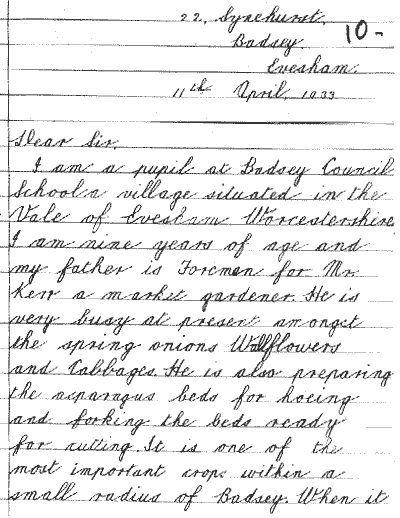 22, Synehurst,
Badsey.
10-
Evesham.
11th April, 1933
Dear Sir,
I am a pupil at Badsey Council
School a village situated in the
Vale of Evesham Worcestershire
I am nine years of age and
my father is Foreman for Mr.
Kerr a market gardener. He is
very busy at present amongst
the spring onions Wallflowers
and Cabbages. He is also preparing
the asparagus beds for hoeing
and forking the beds ready
for cutting. It is one of the
most important crops within a
small radius of Badsey. When it